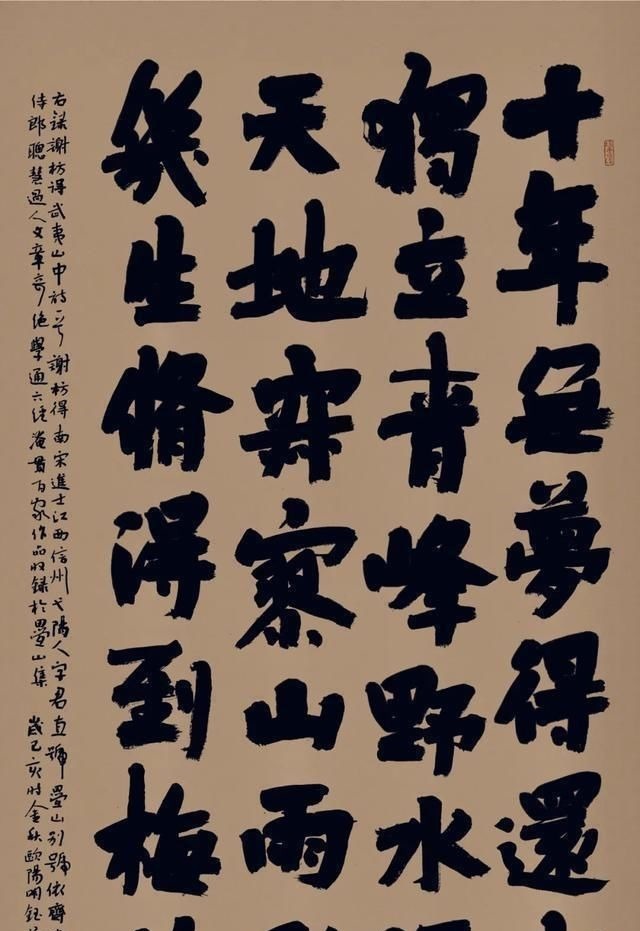 十年無夢得還
獨立青峰野水
天地寂寥山雨
幾生脩得到梅
右錄謝枋得武夷山中詩一首 謝枋得南宋進士江西信州弋陽人字君直號疊山別號依齋
侍郎聰慧過人文章奇絕學通六經淹貫百家作品收錄於疊山集 歲己亥時金秋歐陽明鈺